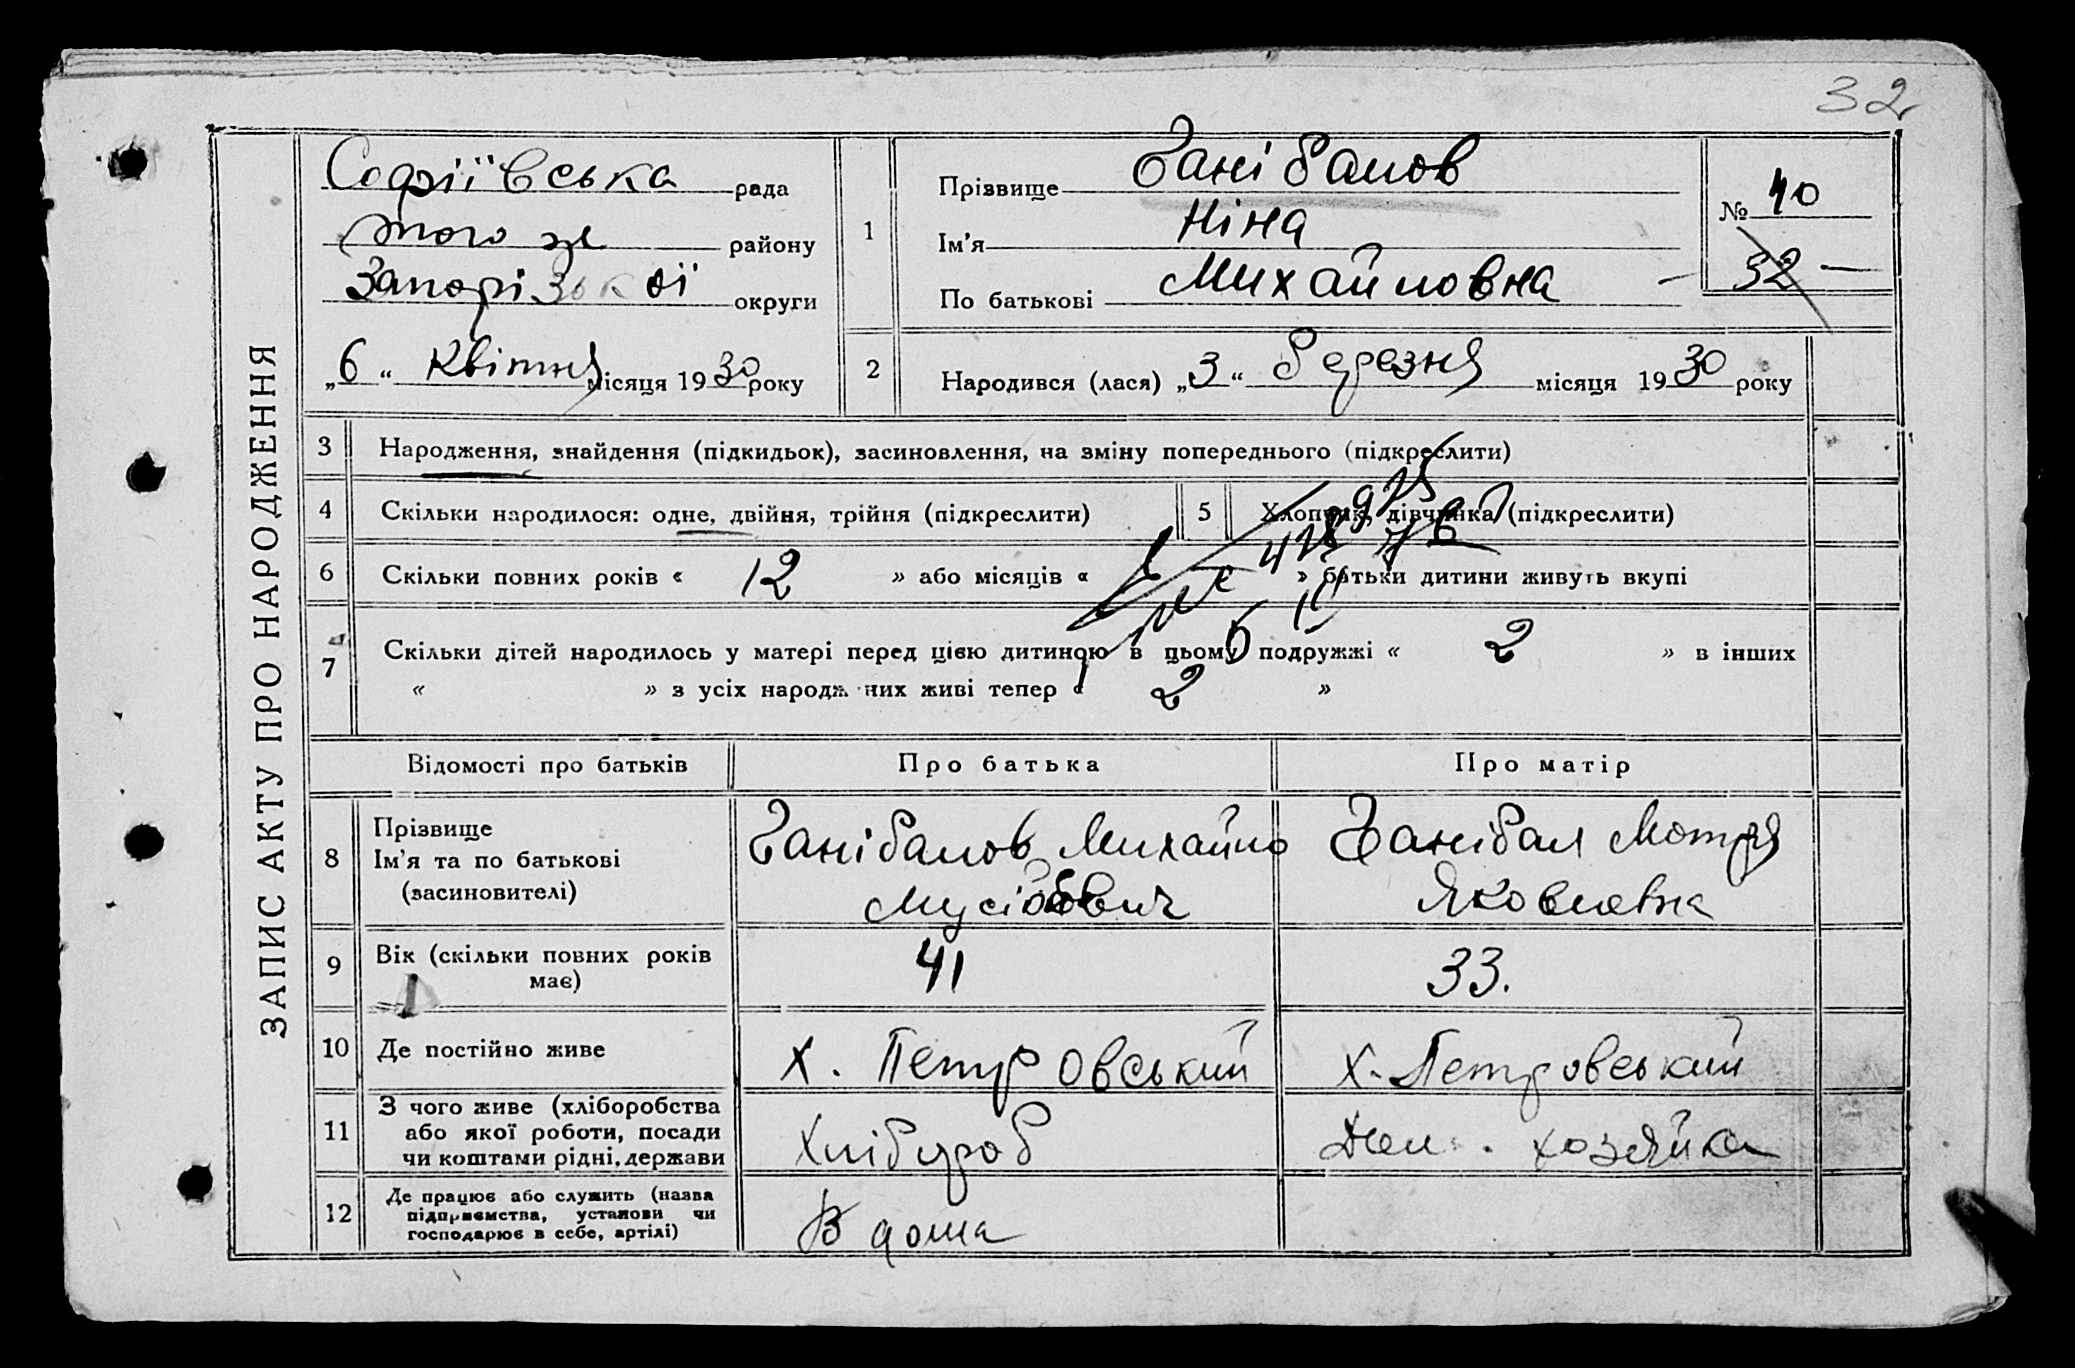 32
ЗАПИС АКТУ ПРО НАРОДЖЕННЯ
Софіївська рада
того же району
Запорізької округи
„6“ Квітня місяця 1930 року
1
Прізвище Ганібалов
Ім'я Ніна
По батькові Михайловна
№ 40
32
2 Народився (лася) „3“ Березня місяця 1930 року
3 Народження, знайдення (підкидьок), засиновлення, на зміну попереднього (підкреслити)
4 Скільки народилося: одне, двійня, трійня (підкреслити) 5 Хлопчик, дівчинка (підкреслити)
6 Скільки повних років « 12 » або місяців « » батьки дитини живуть вкупі
7 Скільки дітей народилось у матері перед цією дитиною в цьому подружжі « 2 » в інших
« » з усіх народжених живі тепер « 2 »
Відомості про батьків Про батька Про матір
8 Прізвище Ім'я та по батькові (засиновителі)
Ганібалов Михайло
Мусійович
Ганібал Мотря
Яковлевна
9 Вік (скільки повних років має) 41 33.
10 Де постійно живе Х. Петровський Х. Петровський
11 З чого живе (хліборобства
або якої роботи, посади
чи коштами рідні, держави
Хлібороб
Дом. хозяйка
12 Де працює або служить (назва
підприємства, установи чи
господарює в себе, артілі)
В дома